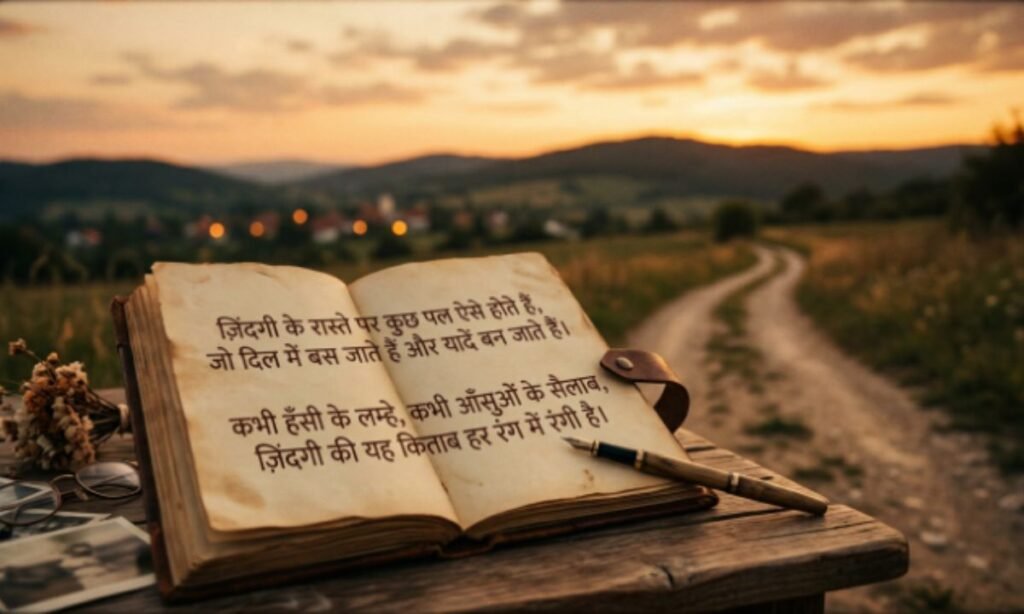 ज़िंदगी के रास्ते पर कुछ पल ऐसे होते हैं,
जो दिल में बस जाते हैं और यादें बन जाते हैं।
कभी हँसी के लम्हे, कभी आँसुओं के सैलाब,
ज़िंदगी की यह किताब हर रंग में रंगी है।